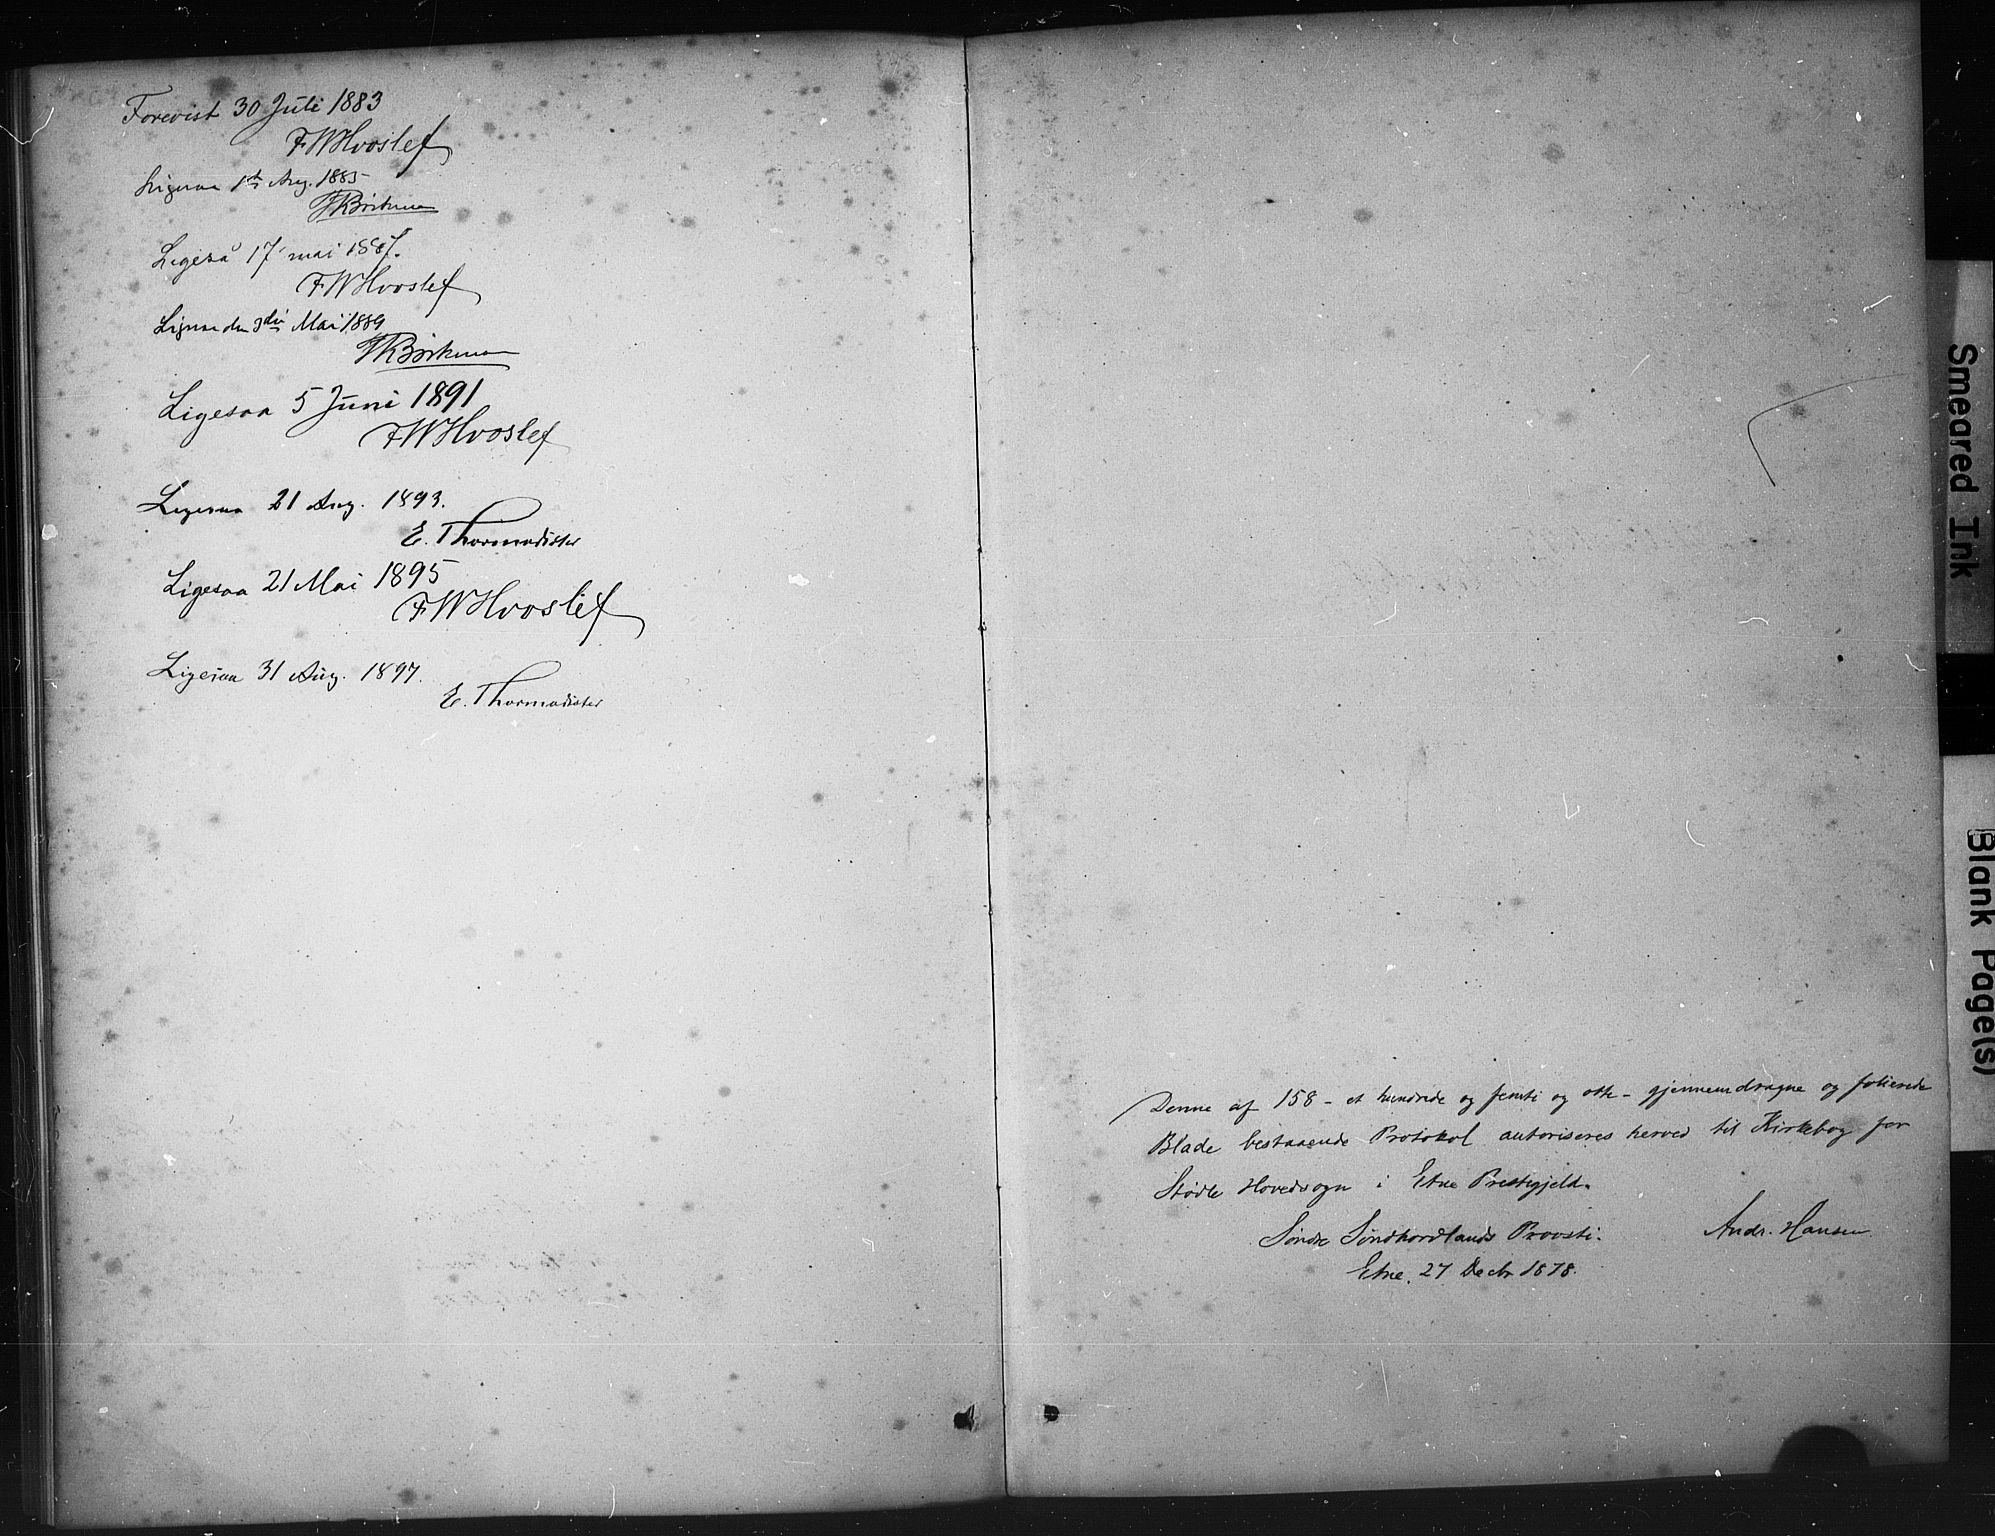 Forevist 30 Juli 1883
FWHvoslef
Ligesaa 1ste Aug. 1885
Ligeså 17 mai 1887.
FWHvoslef
Ligesaa den 3die Mai 1889
Ligesaa 5 Juni 1891
FWHvoslef
Ligesaa 21 Aug. 1893.
E. Thormodsæter
Ligesaa 21 Mai 1895
FWHvoslef
Ligesaa 31 Aug. 1897.
E. Thormodsæter
Denne af 158 - et hundrede og femti og otte - gjennemdragne og folierede
Blade bestaaende Protokol autoriseres herved til Kirkebog for
Stødle Hovedsogn i Etne Prestegjeld.
Søndre Søndhordlands Provsti. Andr. Hansen
Etne, 27 Decbr 1878.
Smeared Ink
Blank Page(s)